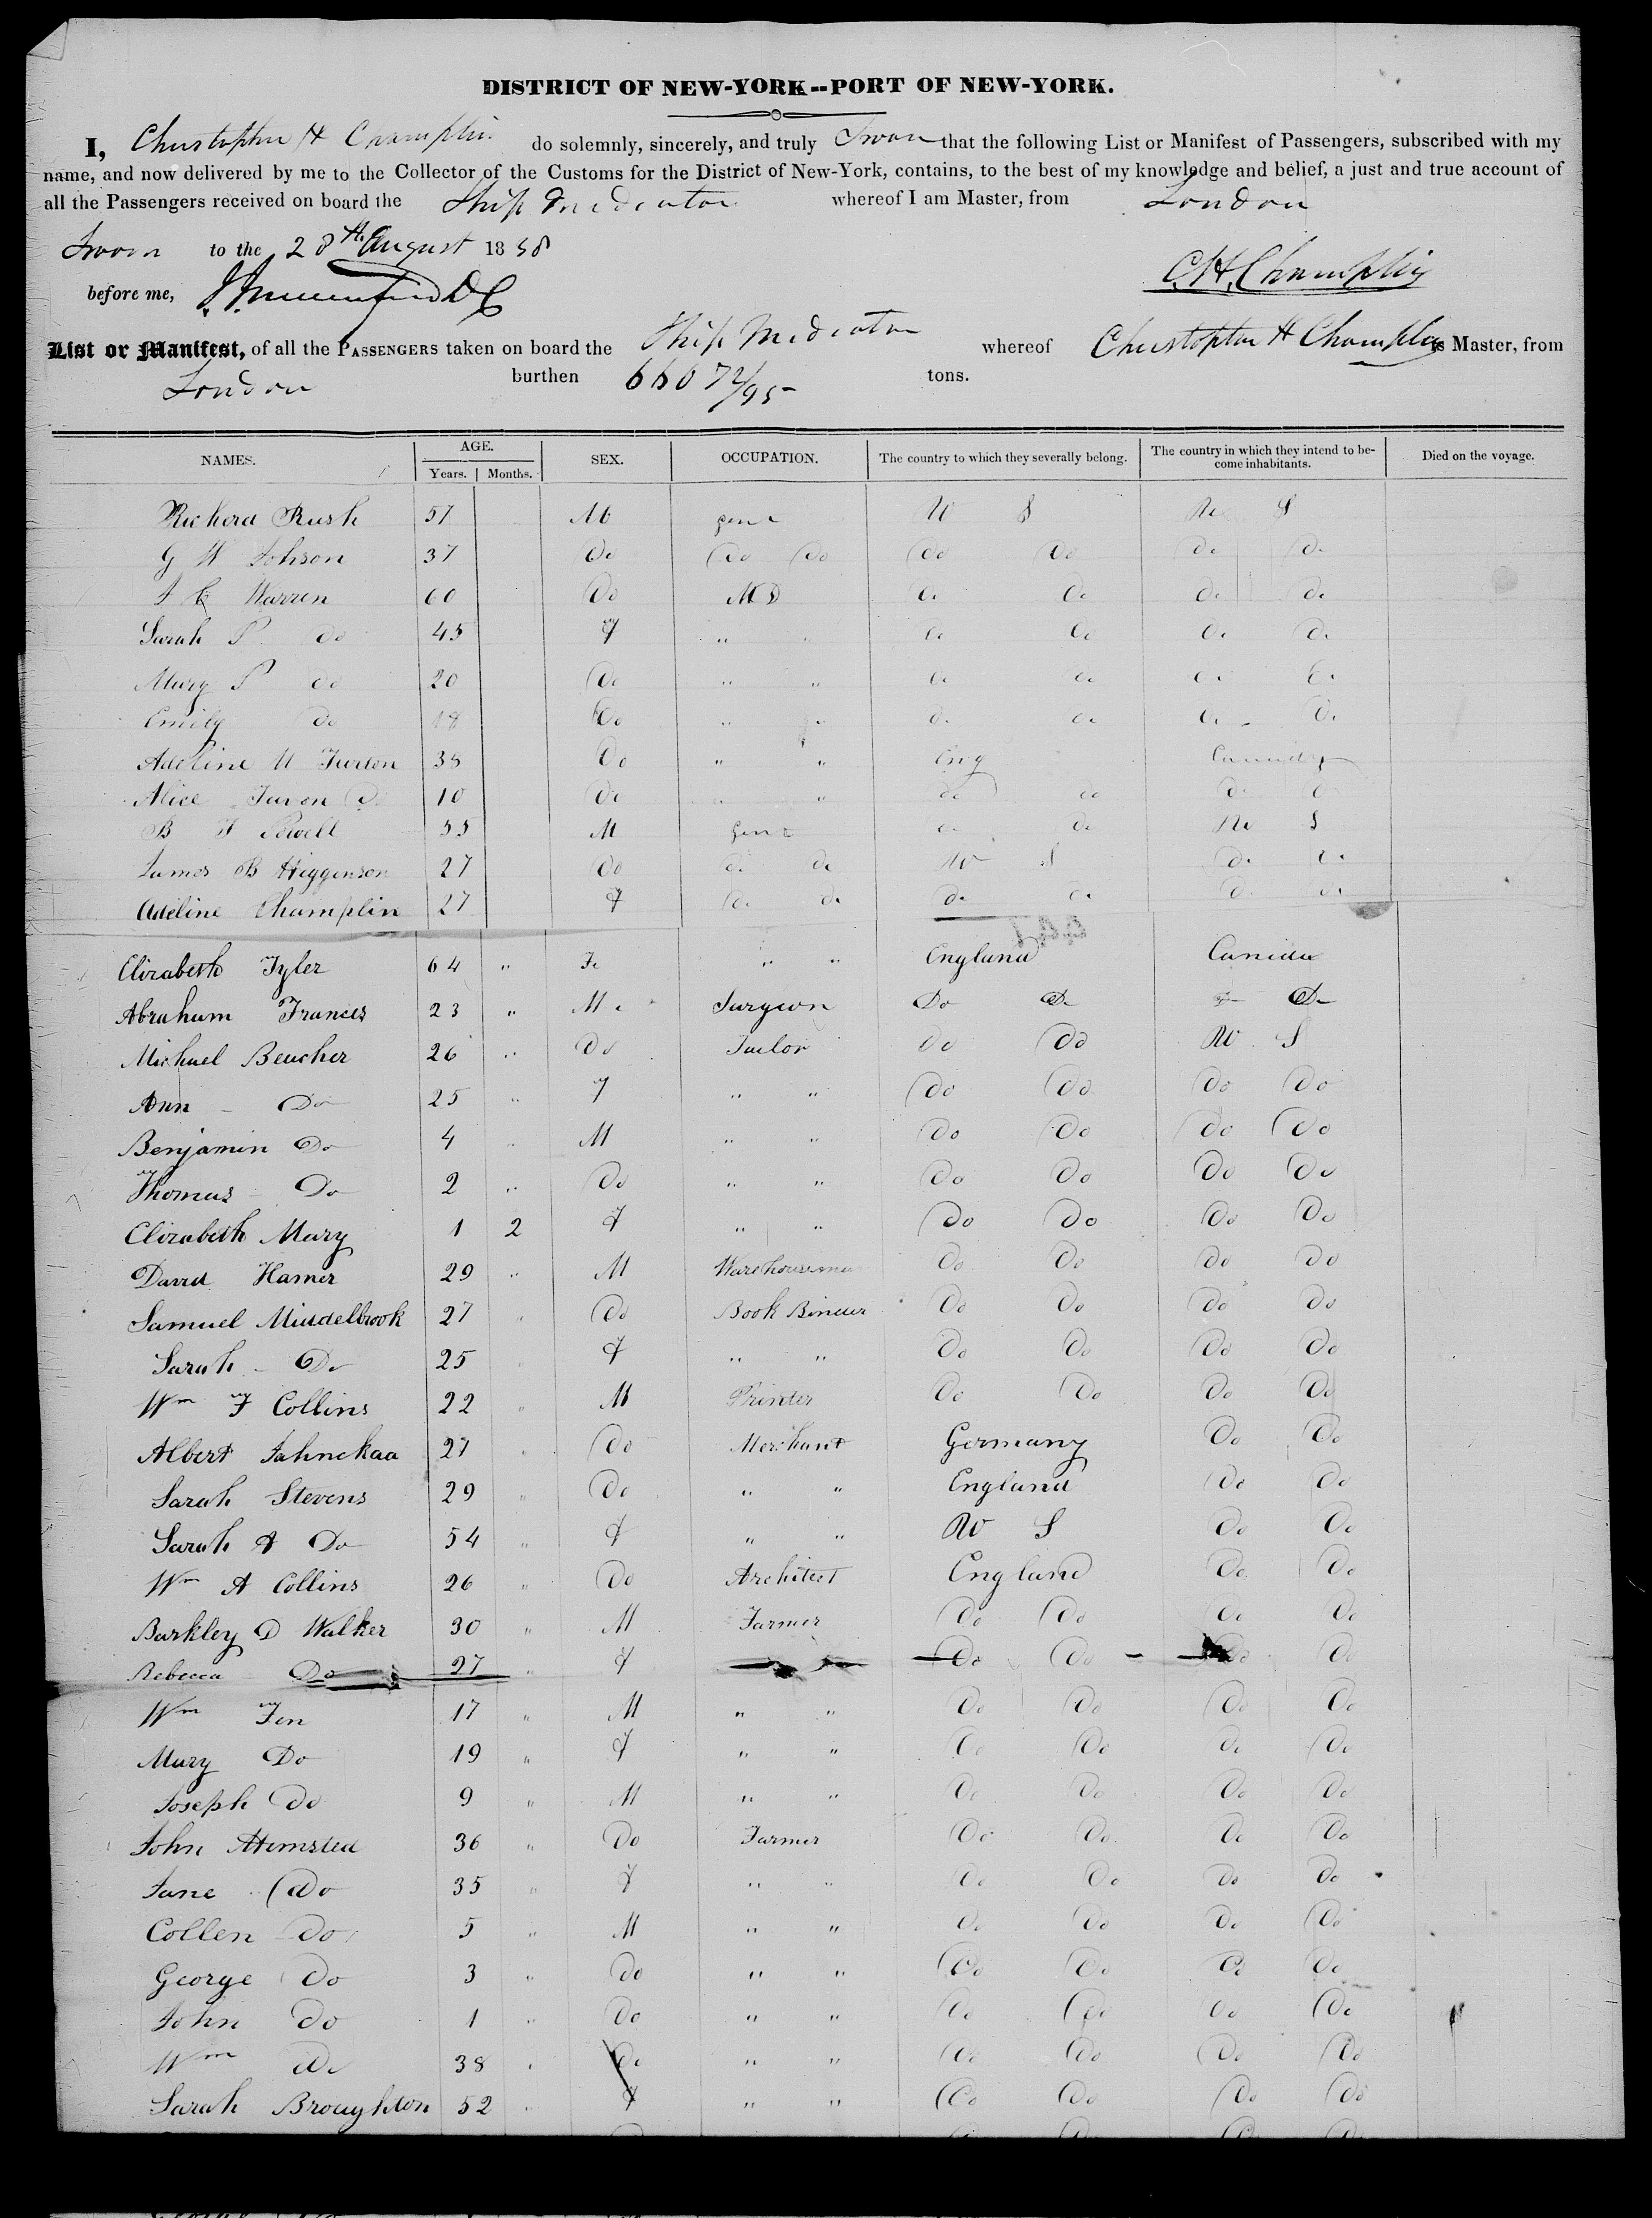 DISTRICT OF NEW-YORK--PORT OF NEW-YORK.
I, Christopher H Champlin do solemnly, sincerely, and truly Swear that the following List or Manifest of Passengers, subscribed with my
name, and now delivered by me to the Collector of the Customs for the District of New-York, contains, to the best of my knowledge and belief, a just and true account of
all the Passengers received on board the Ship Mediator whereof I am Master, from London
Sworn to the 28th August 1838
C. H. Champlin
before me,
List or Manifest, of all the PASSENGERS taken on board the Ship Mediator whereof Christopher H Champlin is Master, from
London burthen 660 72/95 tons.
NAMES. AGE. Years. Months. SEX. OCCUPATION. The country to which they severally belong. The country in which they intend to become inhabitants. Died on the voyage.
Richard Rush 57 M gent U S U S
G W Johson 37 Do Do Do Do Do Do Do
J C Warren 60 Do MD Do Do Do Do
Sarah P do 45 F " " Do Do Do Do
Mary P do 20 Do " " Do Do Do Do
Emily Do 18 Do " " Do Do Do Do
Adeline M 38 Do " " Eng Canada
Alice 10 Do " " do do do do
B F 55 M gent do do U S
James B Higgenson 27 Do do do U S do do
Adeline Champlin 27 F do do do do do do
Elizabeth Tyler 64 " Fe " " England Canida
Abraham Frances 23 " M Surgeon Do Do Do Do
Michael Beucher 26 " Do Tailor Do Do U S
Ann - Do 25 " F " " Do Do Do Do
Benjamin Do 4 " M " " Do Do Do Do
Thomas - Do 2 " Do " " Do Do Do Do
Elizabeth Mary 1 2 F " " Do Do Do Do
David Hamer 29 " M Warehouseman Do Do Do Do
Samuel Middelbrook 27 " Do Book Binder Do Do Do Do
Sarah - Do 25 " F " " Do Do Do Do
Wm F Collins 22 " M Printer Do Do Do Do
Albert Jahnckaa 27 " Do Merchant Germany Do Do
Sarah Stevens 29 " Do " " England Do Do
Sarah A Do 54 " F " " U S Do Do
Wm A Collins 26 " Do Architect England Do Do
Barkley D Walker 30 " M Farmer Do Do Do Do
Rebecca Do 27 " F Do Do Do Do
Wm Fen 17 " M " " Do Do Do Do
Mary Do 19 " F " " Do Do Do Do
Joseph Do 9 " M " " Do Do Do Do
John Hemsted 36 " Do Farmer Do Do Do Do
Jane Do 35 " F " " Do Do Do Do
Collen Do 5 " M " " Do Do Do Do
George Do 3 " Do " " Do Do Do Do
John Do 1 " Do " " Do Do Do Do
Wm Do 38 " Do " " Do Do Do Do
Sarah Broughton 52 " F " " Do Do Do Do